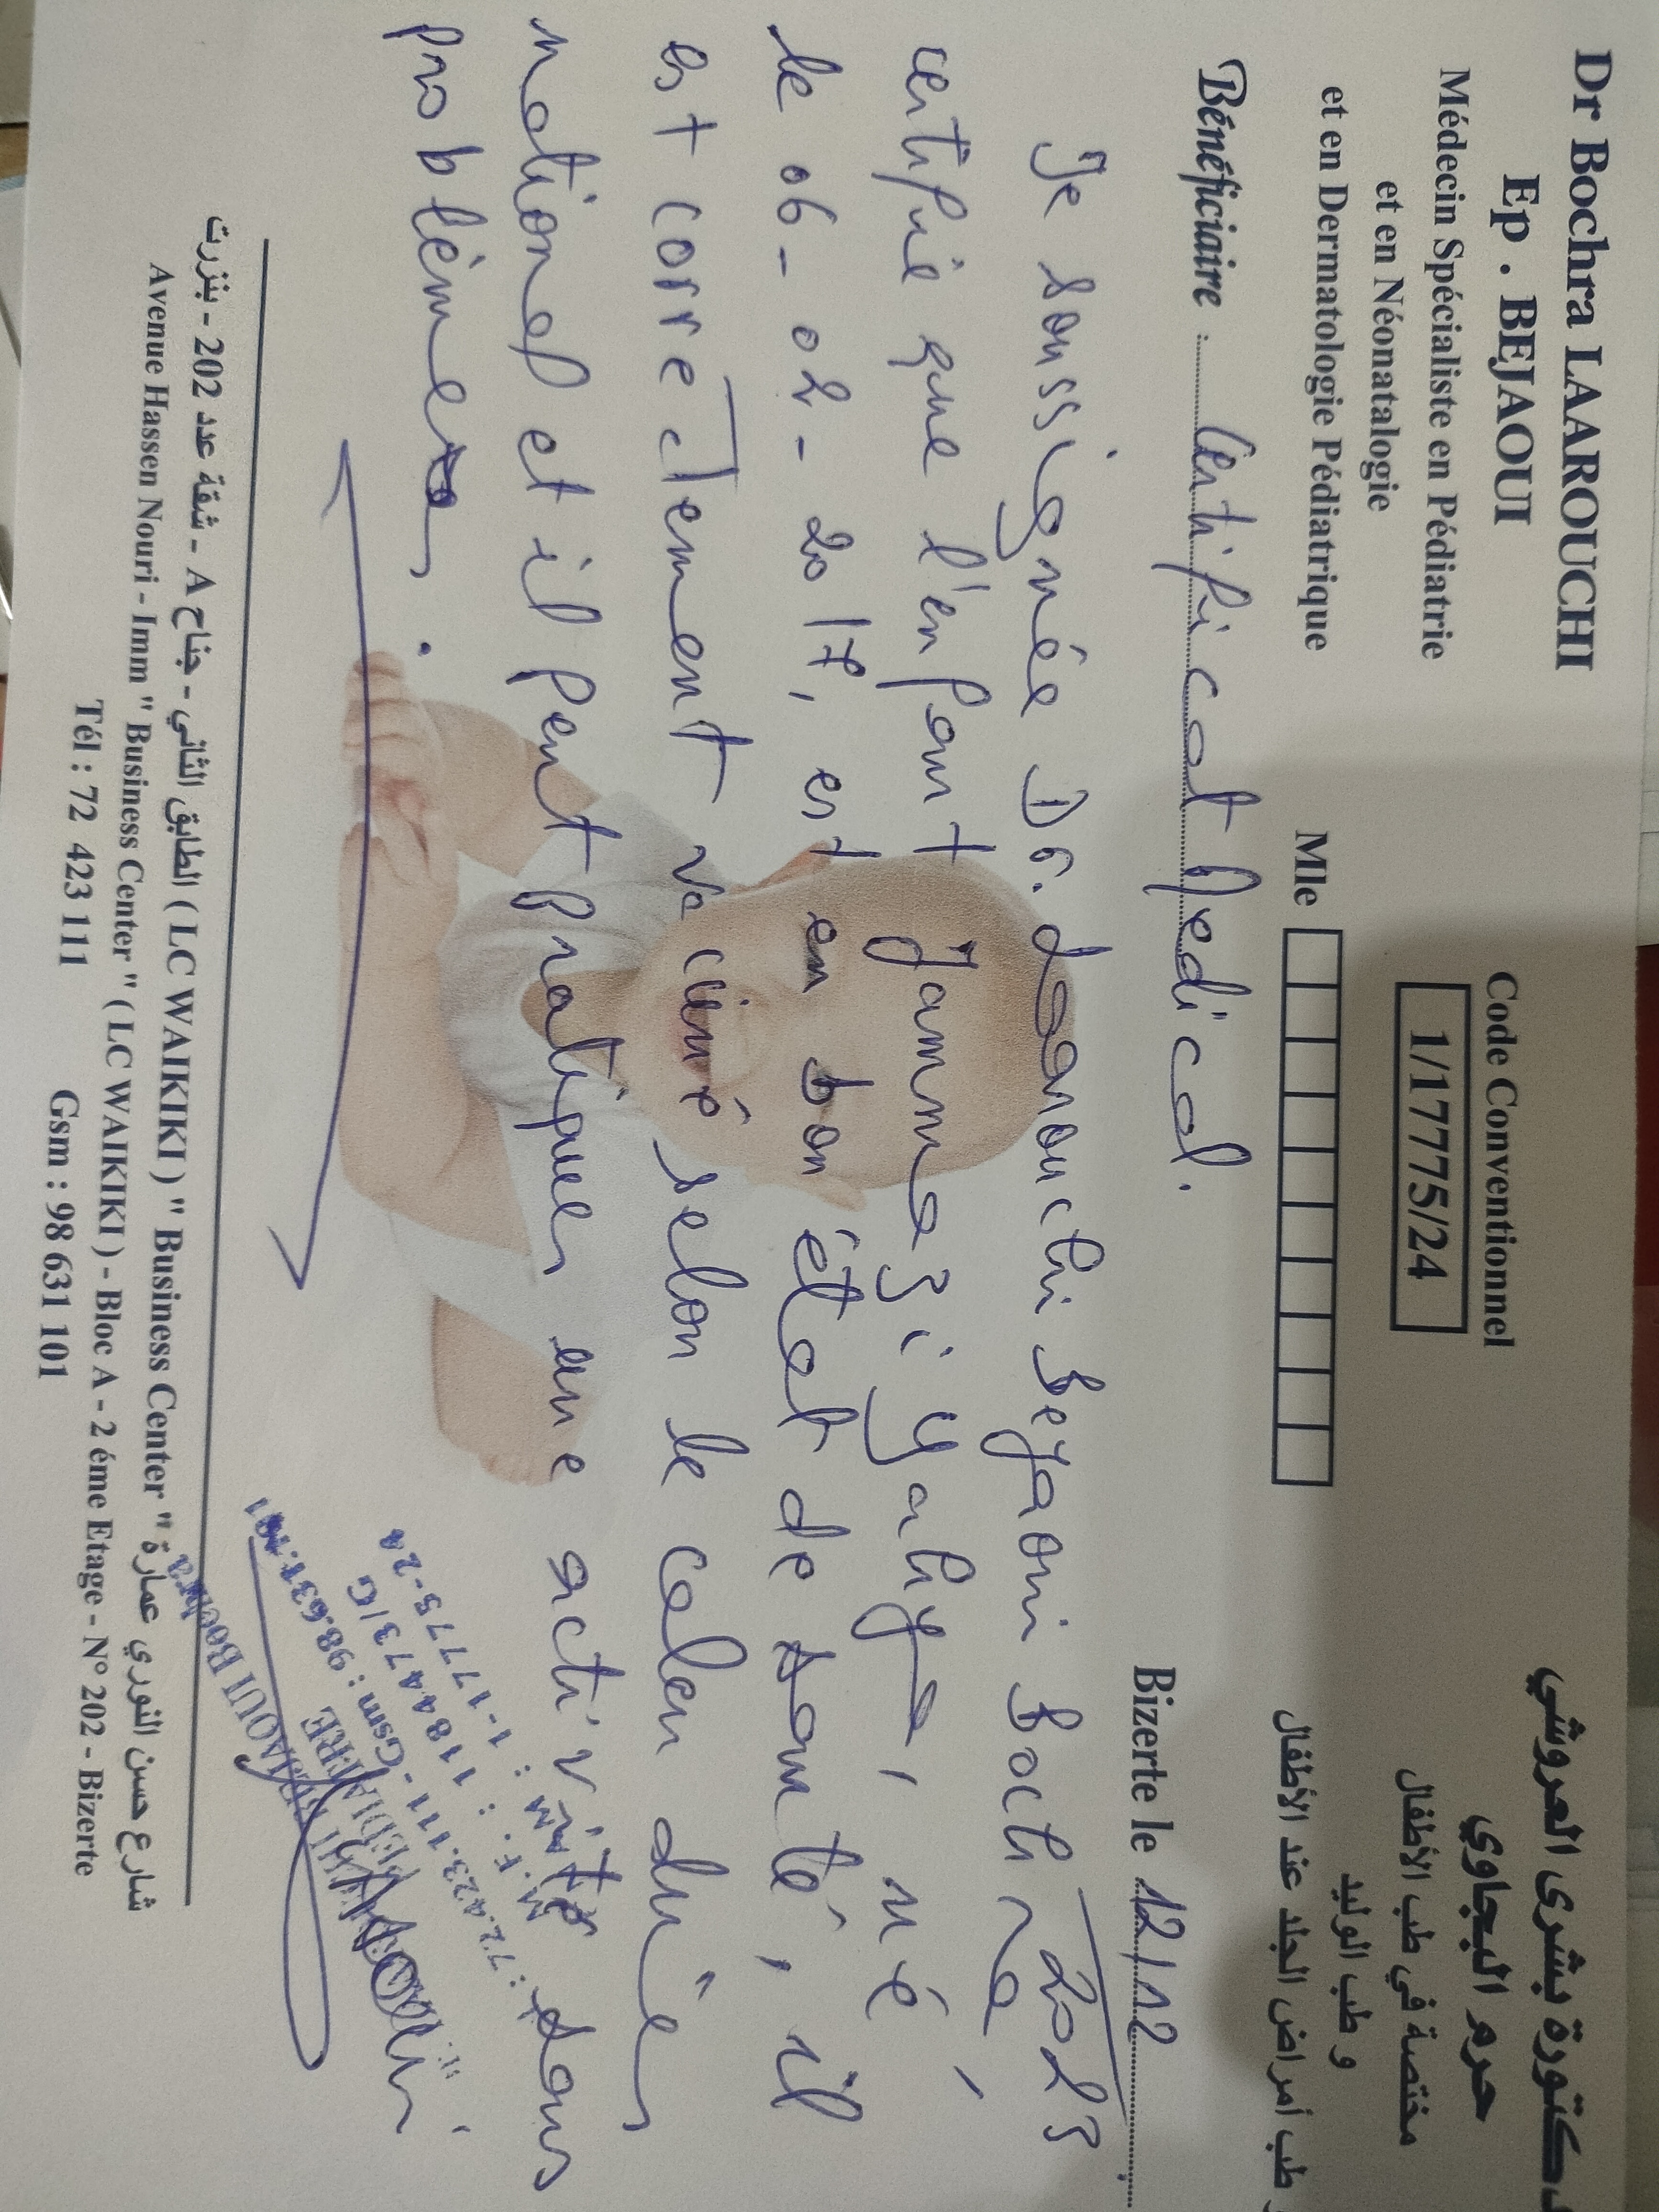 Dr Bochra LAAROUCHI
Ep . BEJAOUI
Médecin Spécialiste en Pédiatrie
et en Néonatalogie
et en Dermatologie Pédiatrique
Code Conventionnel
1/17775/24
Mle
دكتورة بشرى العروشي
حرم البجاوي
مختصة في طب الأطفال
و طب الوليد
و طب أمراض الجلد عند الأطفال
Bizerte le 12/12 2025
Bénéficiaire : Certificat Medical.
Je soussignée Dr. Laarouchi Bejaoui Bochra,
certifie que l'enfant Jammazi Yahya, né
le 06-02-2017, est en bon état de santé, il
est corretement vacciné selon le calendrier
national et il peut pratiquer une activité sans
problèmes.
BEJAOUI Bochra
PEDIATRE
72.423.111 - Gsm : 98.631.101
M.F. : 1184473/G
CNAM : 1-17775-24
شارع حسن النوري عمارة " Business Center " ( LC WAIKIKI ) الطابق الثاني - جناح A - شقة عدد 202 - بنزرت
Avenue Hassen Nouri - Imm " Business Center " ( LC WAIKIKI ) - Bloc A - 2 éme Etage - N° 202 - Bizerte
Tél : 72 423 111 Gsm : 98 631 101